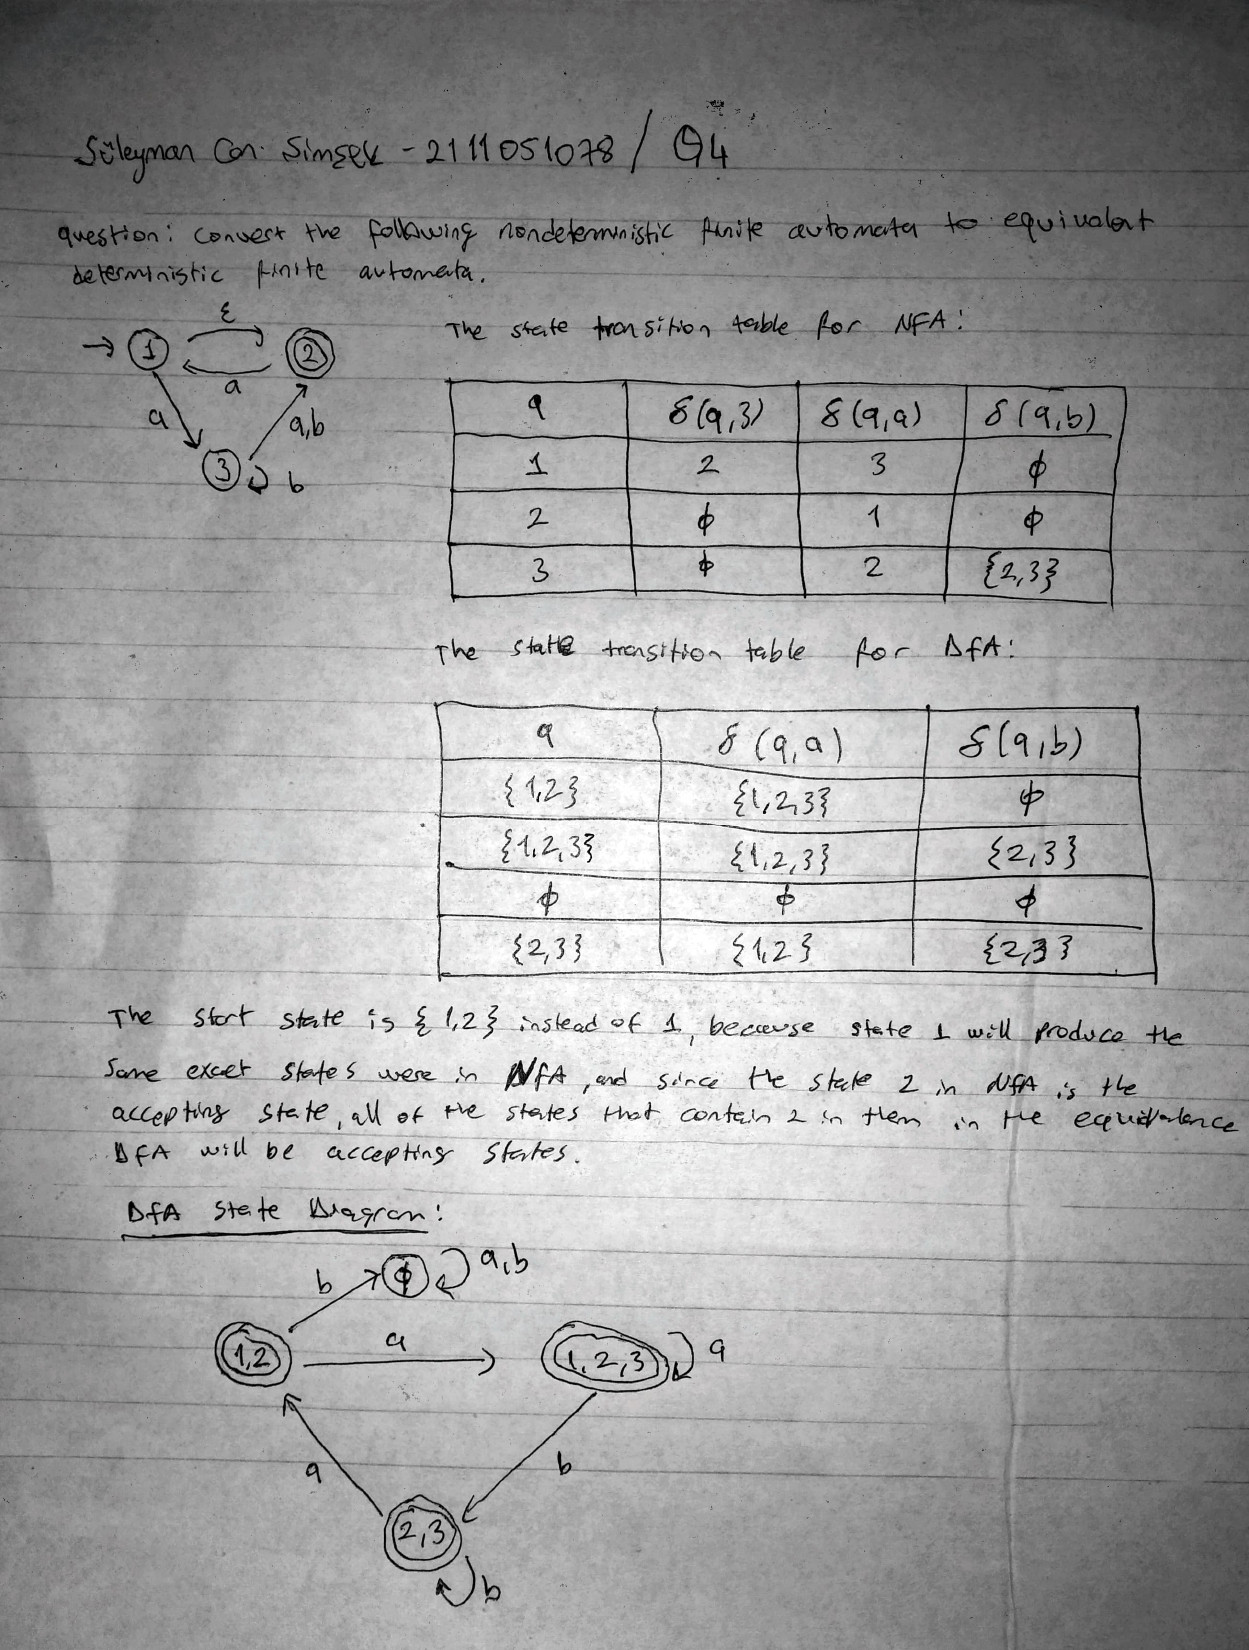 Süleyman Can Simsek - 2111051078 / Q4
question: convert the following nondeterministic finite automata to equivalent
deterministic finite automata.
ε
1
2
a
a
a,b
3
b
The state transition table for NFA:
q δ(q,ε) δ(q,a) δ(q,b)
1 2 3 ϕ
2 ϕ 1 ϕ
3 ϕ 2 {2,3}
The state transition table for DfA:
q δ(q,a) δ(q,b)
{1,2} {1,2,3} ϕ
{1,2,3} {1,2,3} {2,3}
ϕ ϕ ϕ
{2,3} {1,2} {2,3}
The start state is {1,2} instead of 1, because state 1 will produce the
same exact states were in NfA, and since the state 2 in NfA is the
accepting state, all of the states that contain 2 in them in the equivalence
DfA will be accepting states.
DfA State Diagram:
b
ϕ
a,b
1,2
a
1,2,3
a
a
b
2,3
b